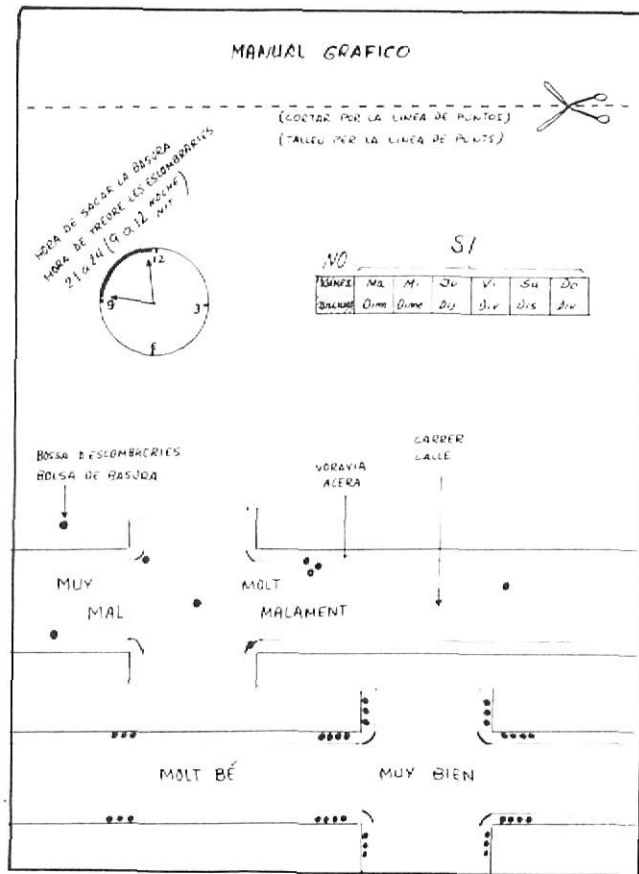 MANUAL GRAFICO
(CORTAR POR LA LINEA DE PUNTOS)
(TALLEU PER LA LINEA DE PUNTS)
HORA DE SACAR LA BASURA
HORA DE TREURE LES ESCOMBRARIES
21 a 24 (9 a 12 NOCHE)
NIT
12
9
3
6
NO
SI
Ma Mi Ju Vi Sa Do
Dim Dime Dij Div Dis Div
BOSSA D ESCOMBRERIES
BOLSA DE BASURA
VORAVIA
ACERA
CARRER
CALLE
MUY
MAL
MOLT
MALAMENT
MOLT BÉ
MUY BIEN